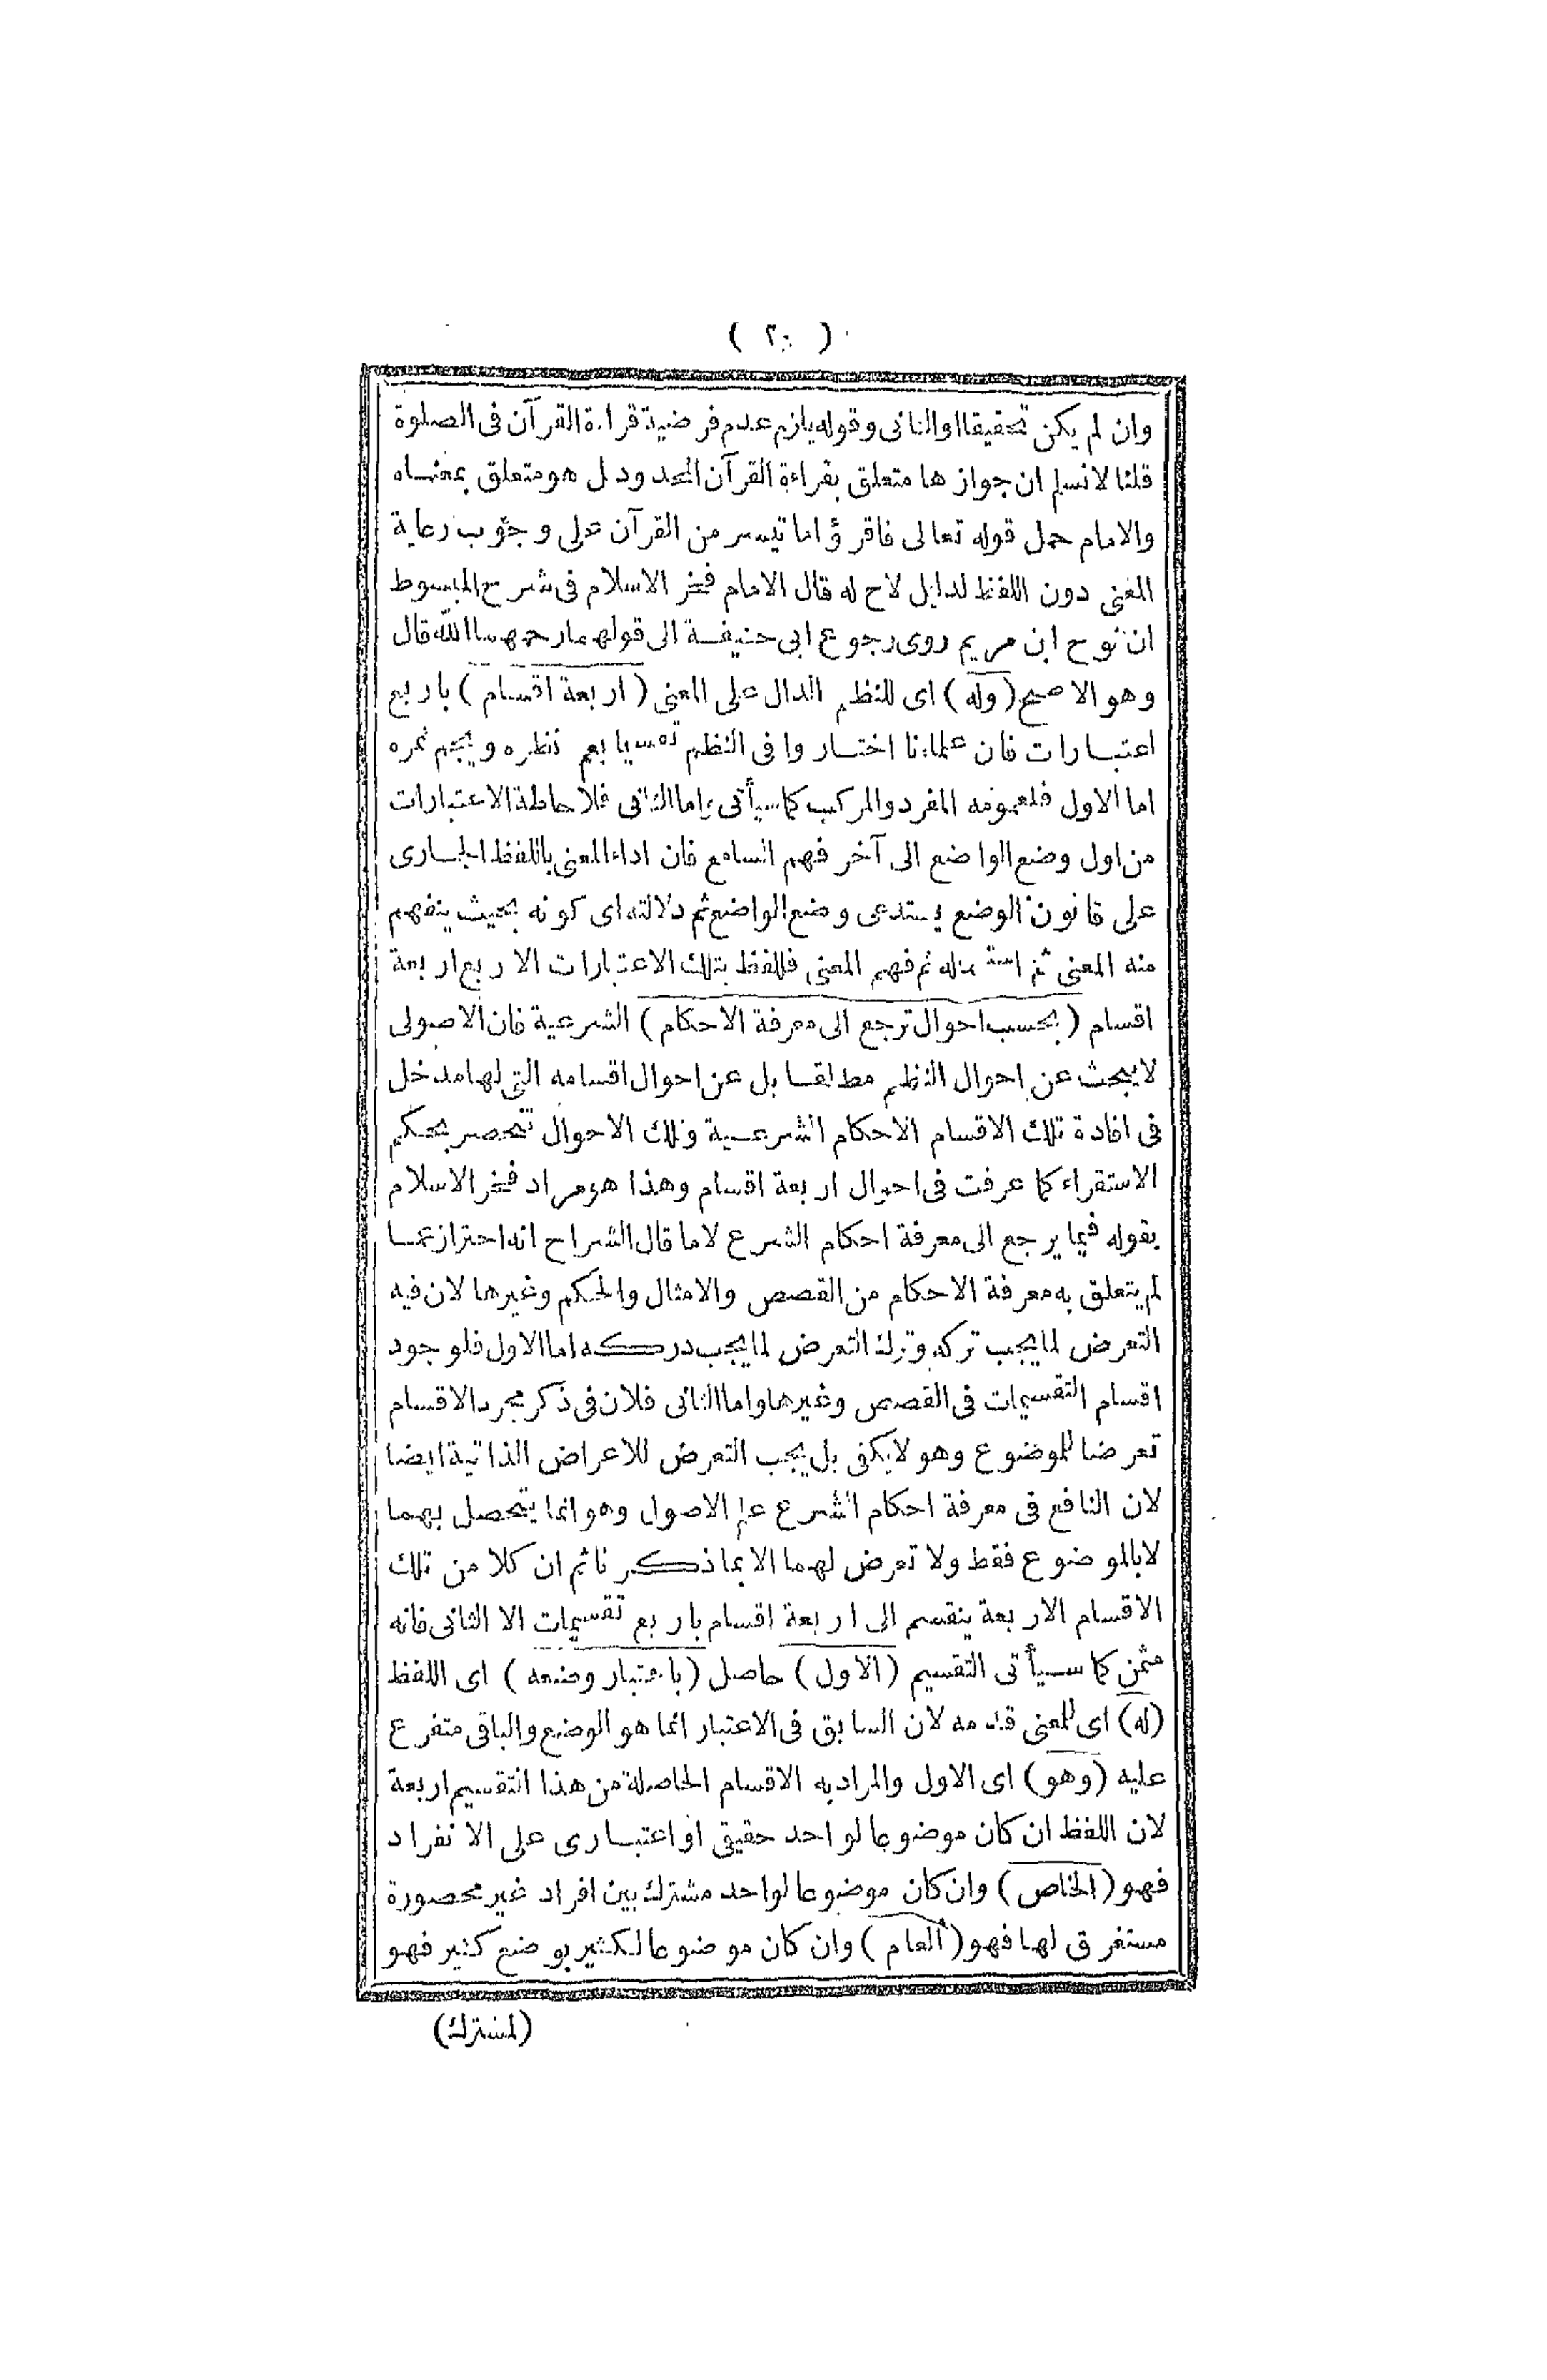 ( ٢٠ )
وان لم يكن تحقيقا او الثانى وقوله يلزم عدم فرضية قراءة القرآن فى الصلوة
قلنا لا نسلم ان جوازها متعلق بقراءة القرآن المحدود بل هو متعلق بمعنـاه
والامام حمل قوله تعالى فاقرؤا ما تيسر من القرآن على وجوب رعاية
المعنى دون اللفظ لدليل لاح له قال الامام فخر الاسلام فى شرح المبسوط
ان نوح ابن مريم روى رجوع ابى حنيفـة الى قولهما رحمهمـا الله قال
وهو الاصح (وله) اى للنظم الدال على المعنى (اربعة اقسام) باربع
اعتبـارات فان علماءنا اختـاروا فى النظم تقسيما يعم نظره ويجم ثمره
اما الاول فلعمومه المفرد والمركب كما سيأتى واما الثانى فلاحاطة الاعتبارات
من اول وضع الواضع الى آخر فهم السامع فان اداء المعنى باللفظ الجـارى
على قانون الوضع يستدعى وضع الواضع ثم دلالته اى كونه بحيث ينفهم
منه المعنى ثم استعماله ثم فهم المعنى فللفظ بتلك الاعتبارات الاربع اربعة
اقسام (بحسب احوال ترجع الى معرفة الاحكام) الشرعية فان الاصولى
لا يبحث عن احوال النظم مطلقـا بل عن احوال اقسامه التى لها مدخل
فى افادة تلك الاقسام الاحكام الشرعـية وتلك الاحوال تنحصر بحكم
الاستقراء كما عرفت فى احوال اربعة اقسام وهذا هو مراد فخر الاسلام
بقوله فيما يرجع الى معرفة احكام الشرع لا ما قال الشراح انه احتراز عمـا
لم يتعلق به معرفة الاحكام من القصص والامثال والحكم وغيرها لان فيه
التعرض لما يجب تركه وترك التعرض لما يجب دركـه اما الاول فلوجود
اقسام التقسيمات فى القصص وغيرها واما الثانى فلان فى ذكر مجرد الاقسام
تعرضا للموضوع وهو لا يكفى بل يجب التعرض للاعراض الذاتية ايضا
لان النافع فى معرفة احكام الشرع علم الاصول وهو انما يتحصل بهما
لا بالموضوع فقط ولا تعرض لهما الا بما ذكـرنا ثم ان كلا من تلك
الاقسام الاربعة ينقسم الى اربعة اقسام باربع تقسيمات الا الثانى فانه
مثمن كما سـيأتى التقسيم (الاول) حاصل (باعتبار وضعه) اى اللفظ
(له) اى للمعنى قدمه لان السابق فى الاعتبار انما هو الوضع والباقى متفرع
عليه (وهو) اى الاول والمراد به الاقسام الحاصلة من هذا التقسيم اربعة
لان اللفظ ان كان موضوعا لواحد حقيقى او اعتبـارى على الانفراد
فهو (الخاص) وان كان موضوعا لواحد مشترك بين افراد غير محصورة
مستغرق لها فهو (العام) وان كان موضوعا لـكثير بوضع كثير فهو
(المشترك)